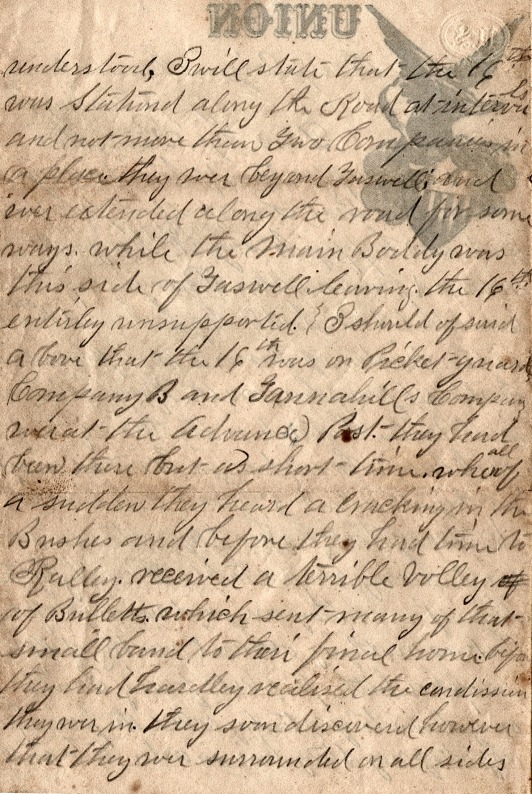 UNION
understood, I will state that the 16th
was stationd along the Road at interv
and not more than Two Companies in
a place they wer beyond Taswell; and
wer extended along the road for som
ways. while the Main Boddy was
this side of Taswell leaving the 16th
entirley unsupported. I should of said
above that the 16th was on Picket-guard
Company B and Tannahills Compan
wer at the Advance Post. they had
been there but a short time. when all of
a sudden they heard a cracking in th
Bushes and before they had time to
Ralley. received a terrible volley
of Bullets. which sent many of that
small band to their final home. before
they had hardley realised the condission
they wer in. they soon discoverd however
that they wer surrounded on all sides